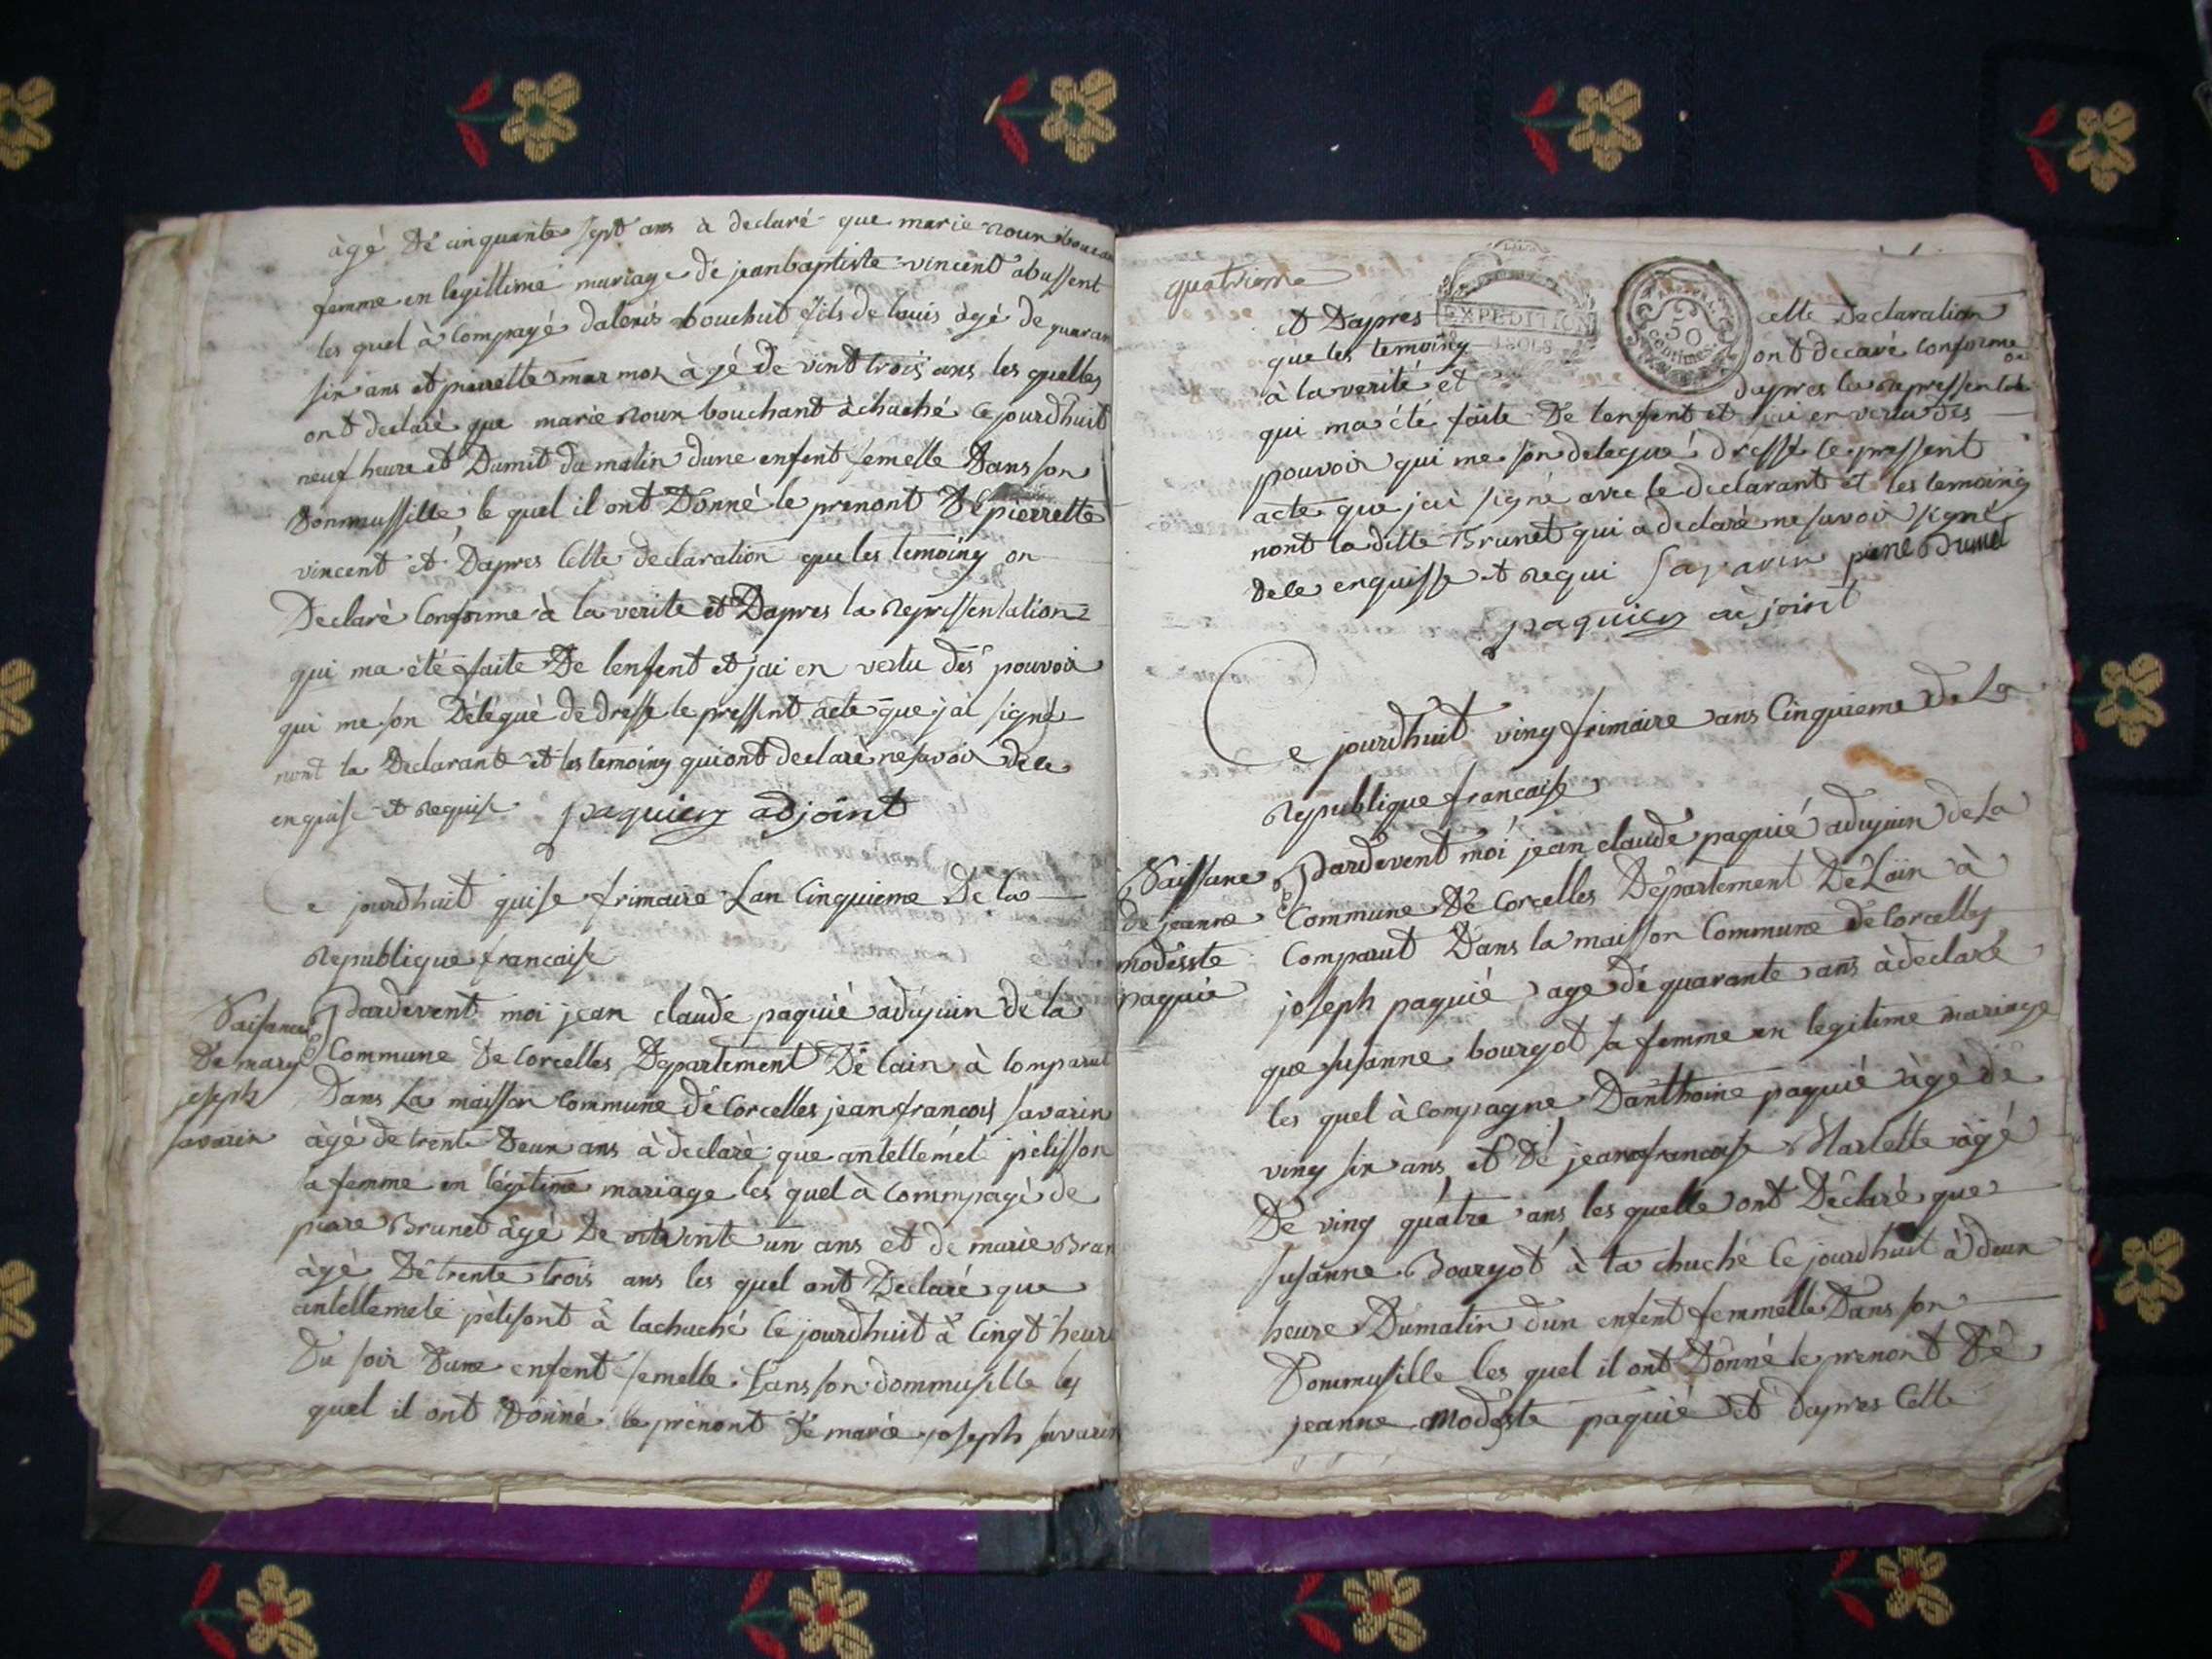 àgé De cinquante sept ans à declaré que marie roux
femme en legittime mariage de jeanbaptiste vincent abussent
les quel à compagé dalexis bouchut fils de louis àgé de quaran
six ans et pierrette marmos àgé de vint trois ans les quelles
ont declaré que marie roux bouchant àchuché cejourdhuit
neuf heure et Dumit du matin dune enfent femelle Dans son
Dommussille le quel il ont Donné le prenont De pierrette
vincent et Dapres Cette declaration que les temoing on
Declaré Conforme à la verite et Dapres la Repressentation
qui ma été faite De lenfent et jai en vertu des pouvoir
qui me son Délégué de dresse le pressent acte que jai signé
nont la Declarant et les temoing qui ont declaré ne savoir de ce
enquise et Requise paquier adjoint
Ce jourdhuit quise frimaire Lan Cinquieme De la
Republique francaise
Naisance
De mary
joseph
savarin
Pardevent moi jean claude paquié adujuin de la
Commune De Corcelles Departement De lain à Comparut
Dans La maisson Commune de Corcelles jean francois savarin
àgé de trente Deux ans à declaré que antellemet pelisson
sa femme en légitime mariage les quel à Commpagé de
piere Brunet àgé De trente un ans et de marie Brun
àgé De trente trois ans les quel ont Declaré que
antellemete pelisont à tachuché Ce jourdhuit à Cingt heure
Du soir Dune enfent femelle Dans son dommusille les
quel il ont Donné le prenont de marie joseph savarin
quatrieme
EXPEDITION
SOLS
50
Centimes
et Dapres cette Declaration
que les temoing ont decaré Conforme
à la verité et dapres la Repressentation
qui ma été faite De lenfent et jai en vertu des
pouvoir qui me son delegué dressé le pressent
acte que jai signé avec le declarant et les temoing
nont la ditte Brunet qui a declaré ne savoir signé
de ce enquisse et Requi Savarin piere Brunet
paquier adjoint
Ce jourdhuit ving frimaire ans Cinquieme De La
Republique francaise
Naissane
de jeanne
modesste
paquie
Pardevent moi jean claude paquié adujuin de La
Commune De Corcelles Département De Lain à
Comparut Dans la maisson Commune de Corcelles
joseph paquié age de quarante ans à declaré
que susanne bourgot sa femme en legitime mariage
les quel à compagne Danthoine paquié àgé de
ving six ans et De jeanfrancoise Marlette àgé
De ving quatre ans les quelle ont Déclaré que
susanne Bourgot à ta chuché Ce jourdhuit à deux
heure Dumatin dun enfent femmelle Dans son
Dommusille les quel il ont Donné le prenont De
jeanne Modeste paquié et dapres Cette